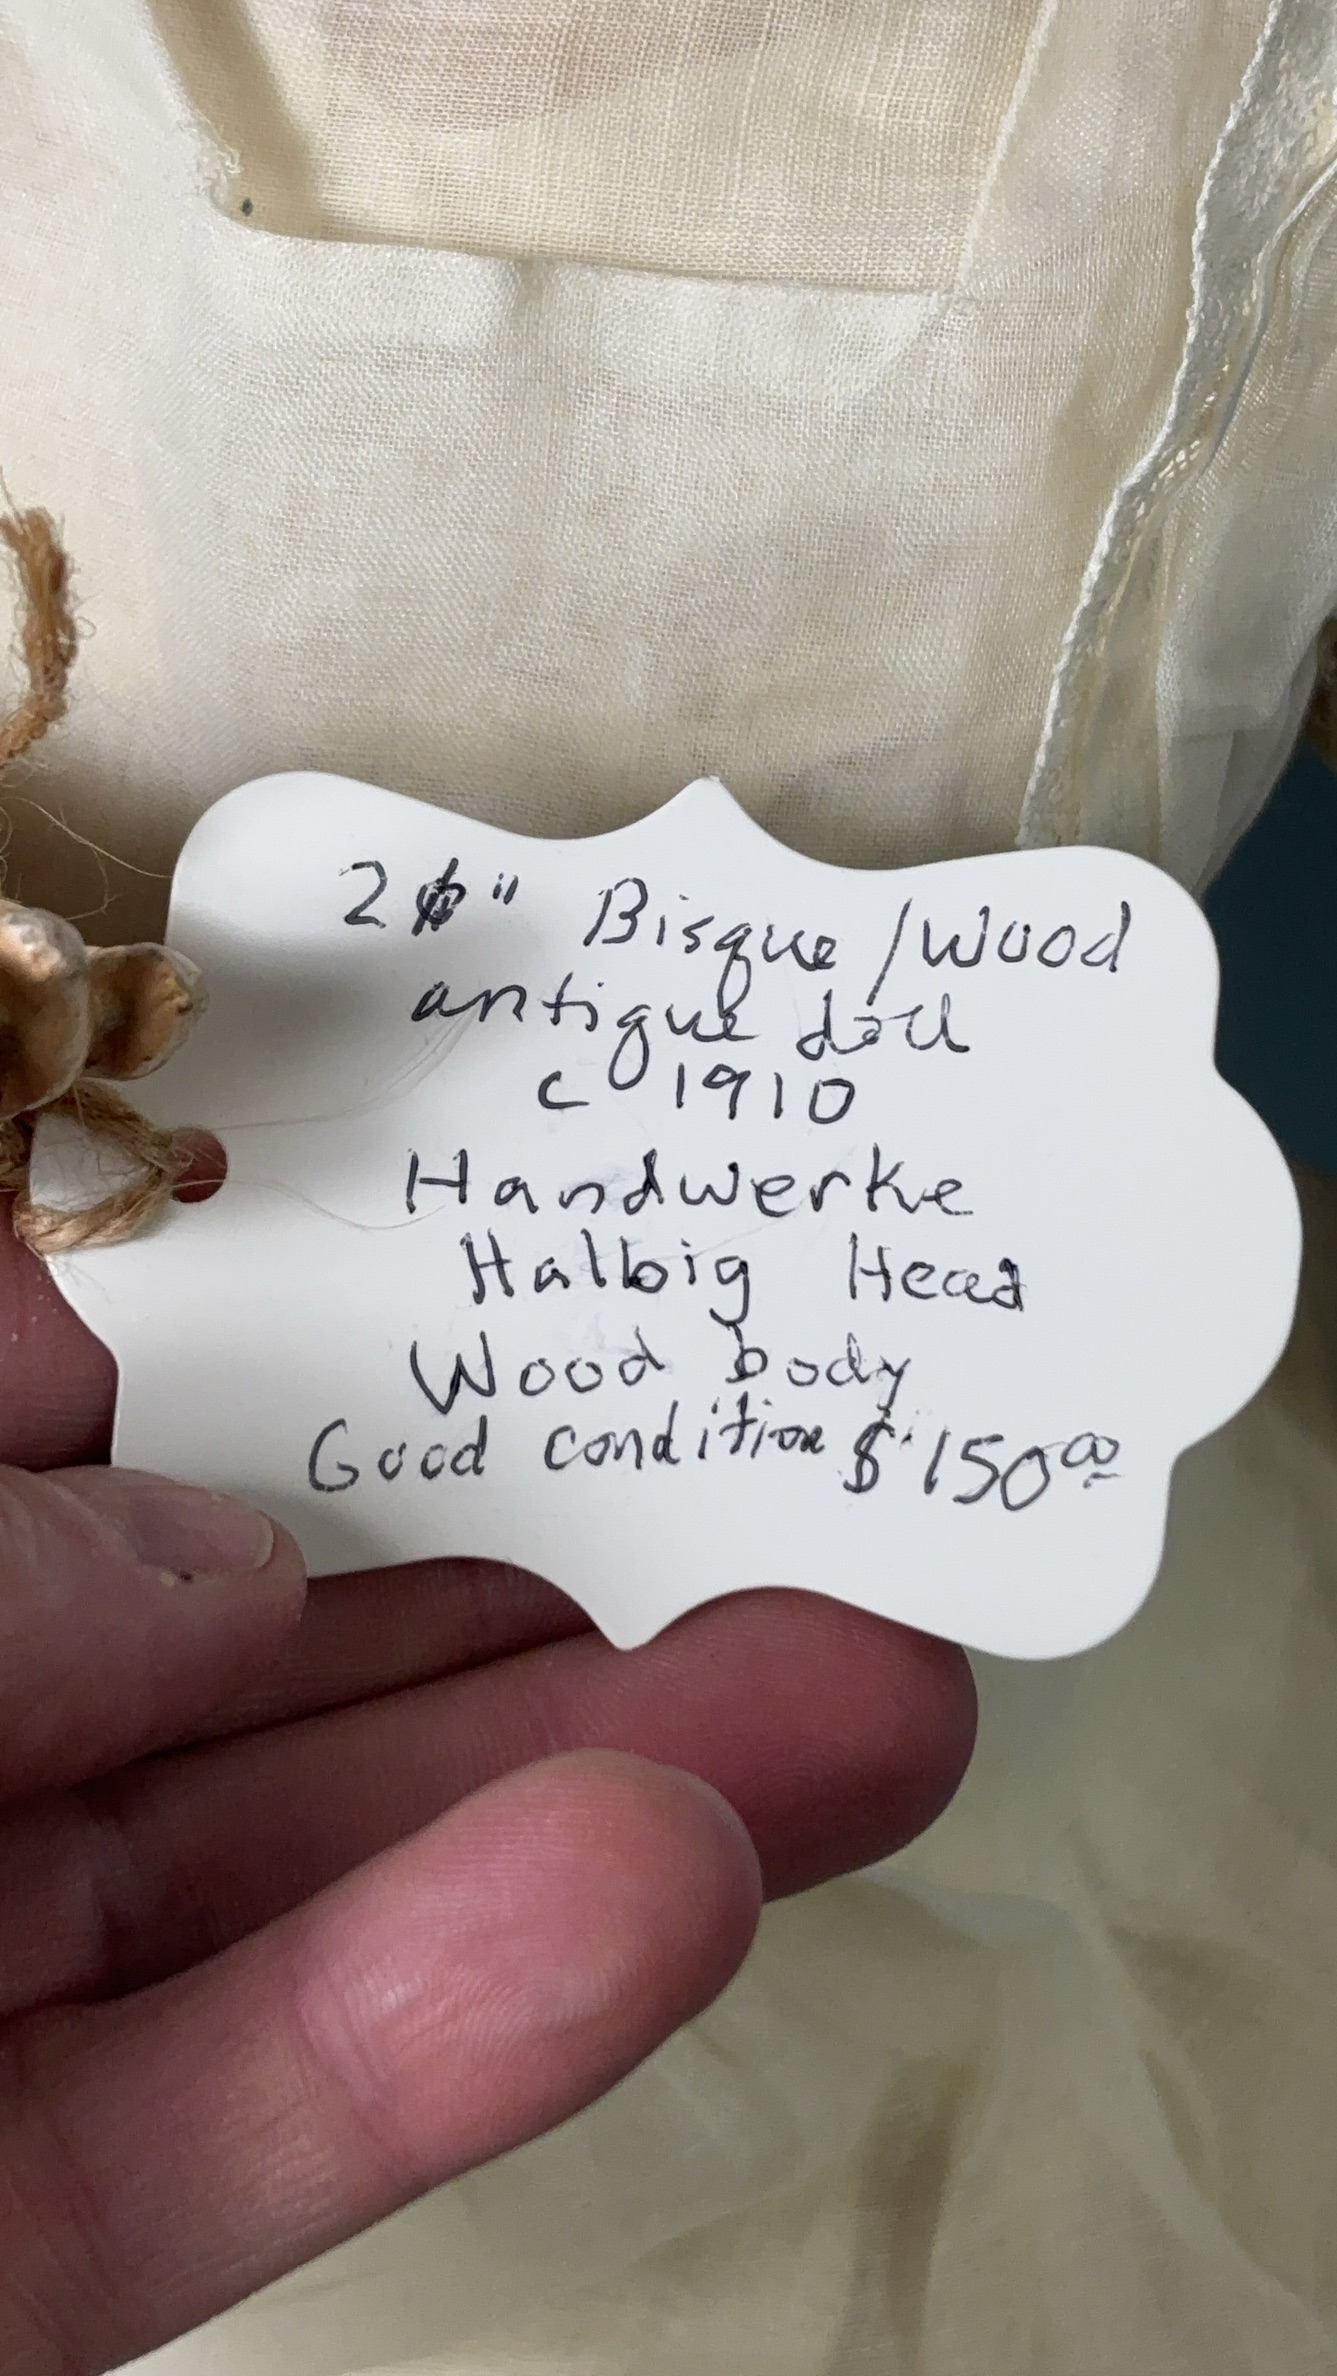 " Bisque / Wood
antique doll
c 1910
Handwerke
Halbig Head
Wood body
Good condition $150.00